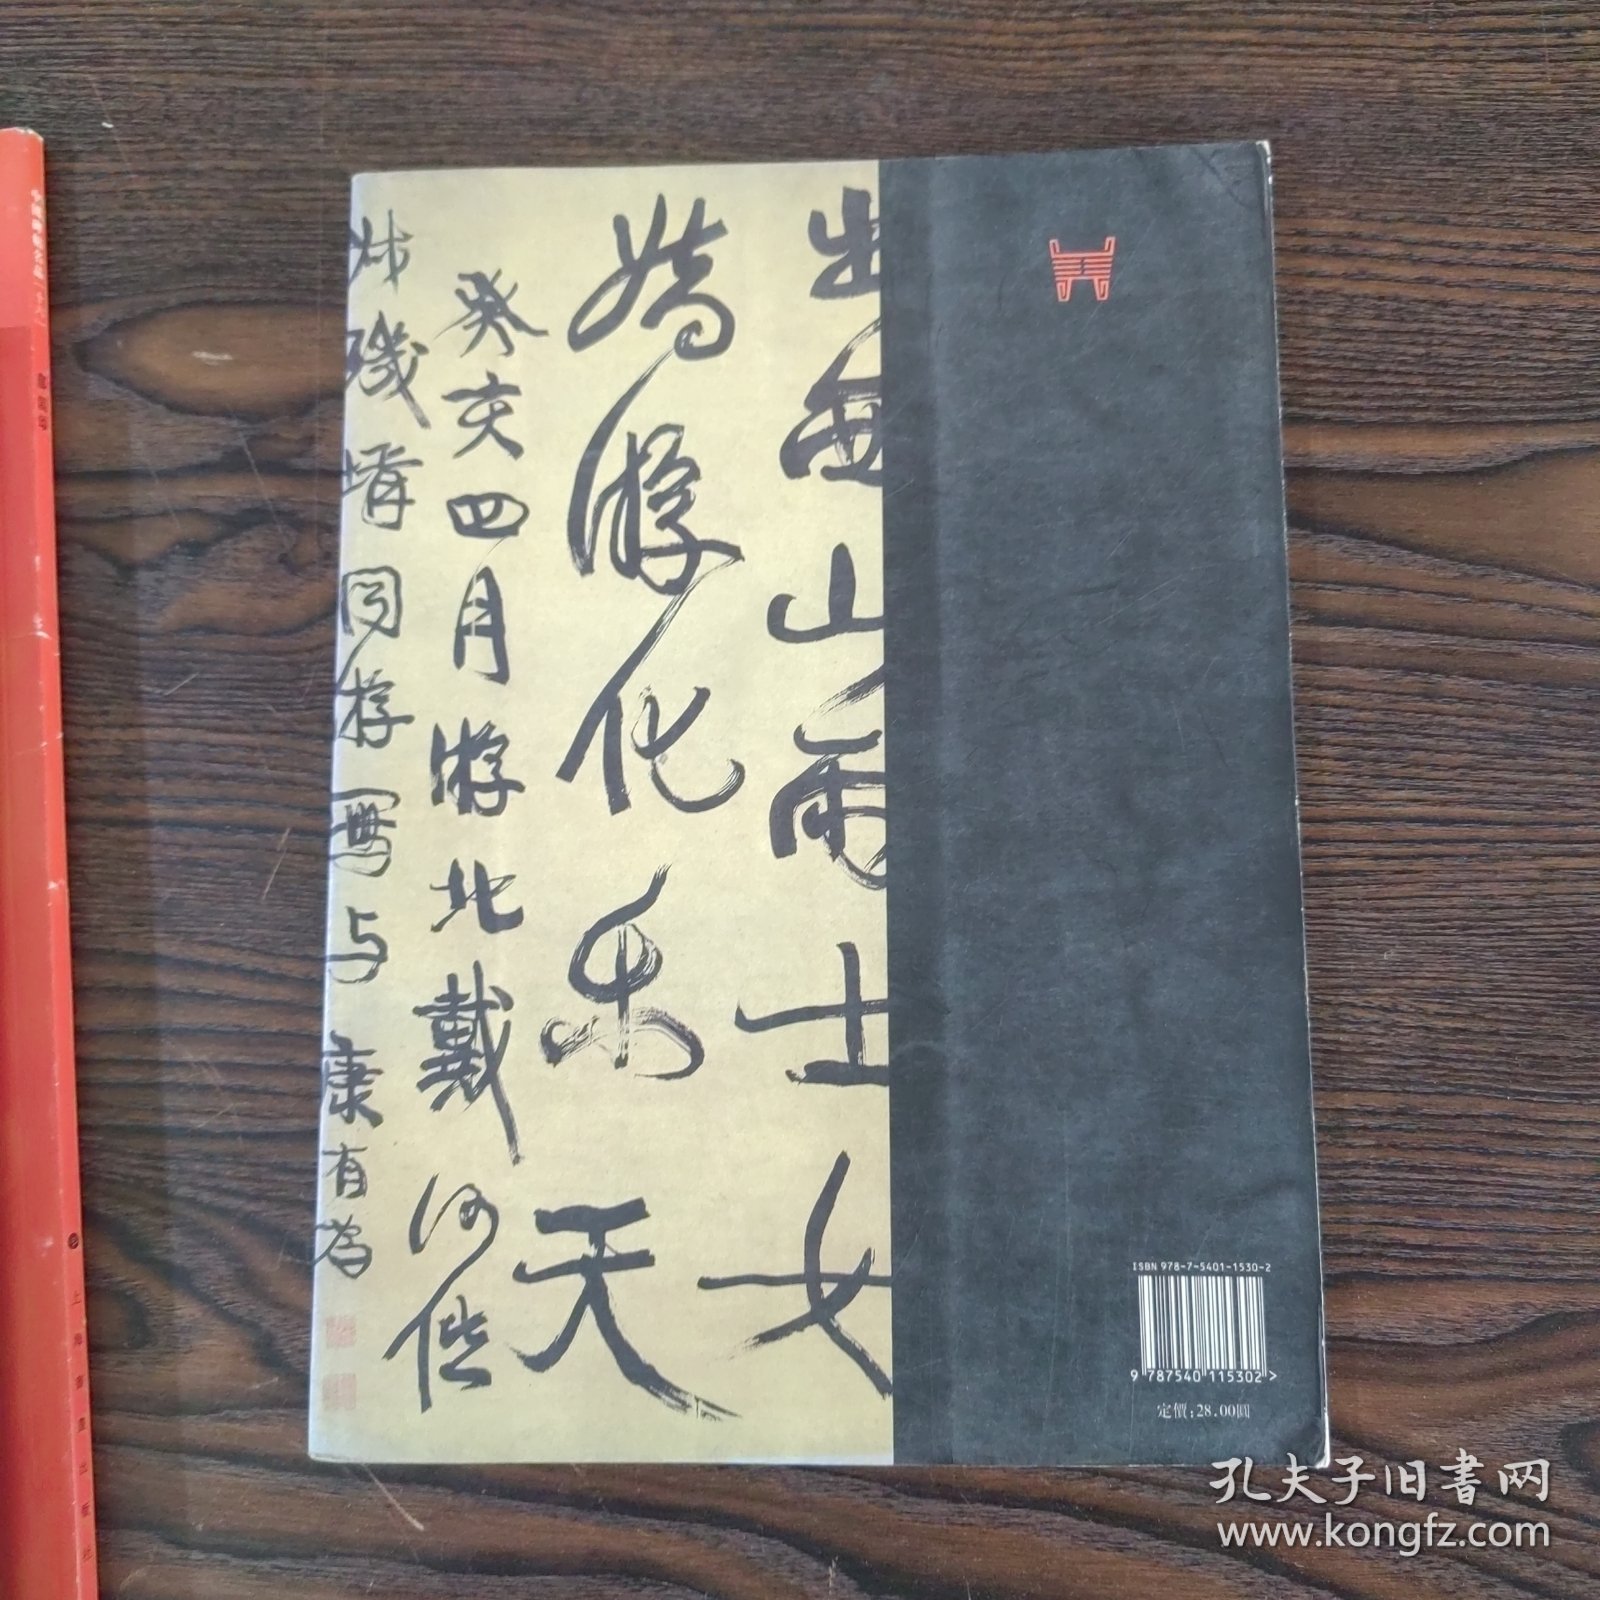 山 士女
嬉游化乐天
癸亥四月游北戴河偕
同游寫与 康有為
ISBN 978-7-5401-1530-2
9 787540 115302 >
定價:28.00圓
上海書畫出版社
孔夫子旧書网
www.kongfz.com